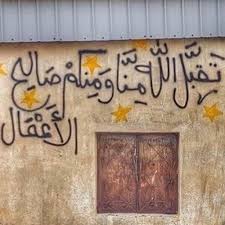 تَقَبَّلَ اللَّهُ مِنَّا وَمِنْكُمْ صَالِحَ
الأَعْمَالِ